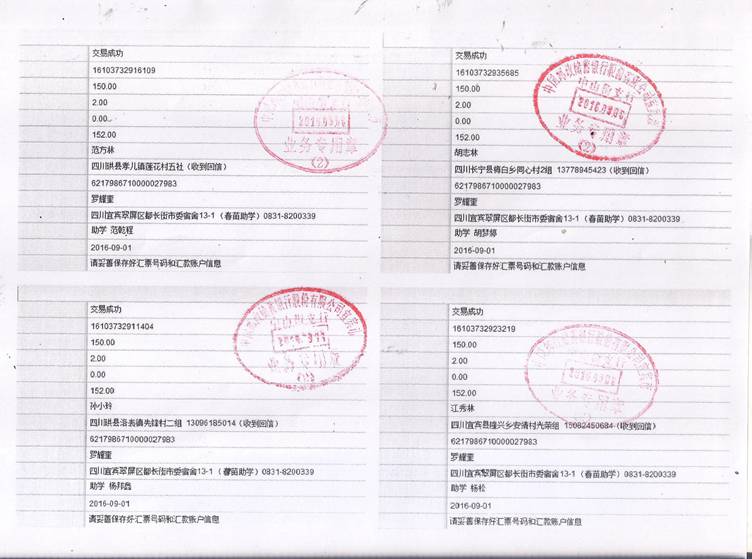 交易成功
16103732916109
150.00
2.00
0.00
152.00
范方林
四川珙县孝儿镇莲花村五社（收到回信）
6217986710000027983
罗耀奎
四川宜宾翠屏区都长街市委宿舍13-1（春苗助学）0831-8200339
助学 范乾程
2016-09-01
请妥善保存好汇票号码和汇款账户信息
业务专用章
(2)
交易成功
16103732935685
150.00
2.00
0.00
152.00
胡志林
四川长宁县梅白乡同心村2组 13778945423（收到回信）
6217986710000027983
罗耀奎
四川宜宾翠屏区都长街市委宿舍13-1（春苗助学）0831-8200339
助学 胡梦婷
2016-09-01
请妥善保存好汇票号码和汇款账户信息
中山街支行
业务专用章
(2)
交易成功
16103732911404
150.00
2.00
0.00
152.00
孙小玲
四川珙县洛表镇先锋村二组 13096185014（收到回信）
6217986710000027983
罗耀奎
四川宜宾翠屏区都长街市委宿舍13-1（春苗助学）0831-8200339
助学 杨邦鑫
2016-09-01
请妥善保存好汇票号码和汇款账户信息
中山街支行
业务专用章
交易成功
16103732923219
150.00
2.00
0.00
152.00
江秀林
四川宜宾县隆兴乡安清村光荣组 15082450684（收到回信）
6217986710000027983
罗耀奎
四川宜宾翠屏区都长街市委宿舍13-1（春苗助学）0831-8200339
助学 杨松
2016-09-01
请妥善保存好汇票号码和汇款账户信息
业务专用章